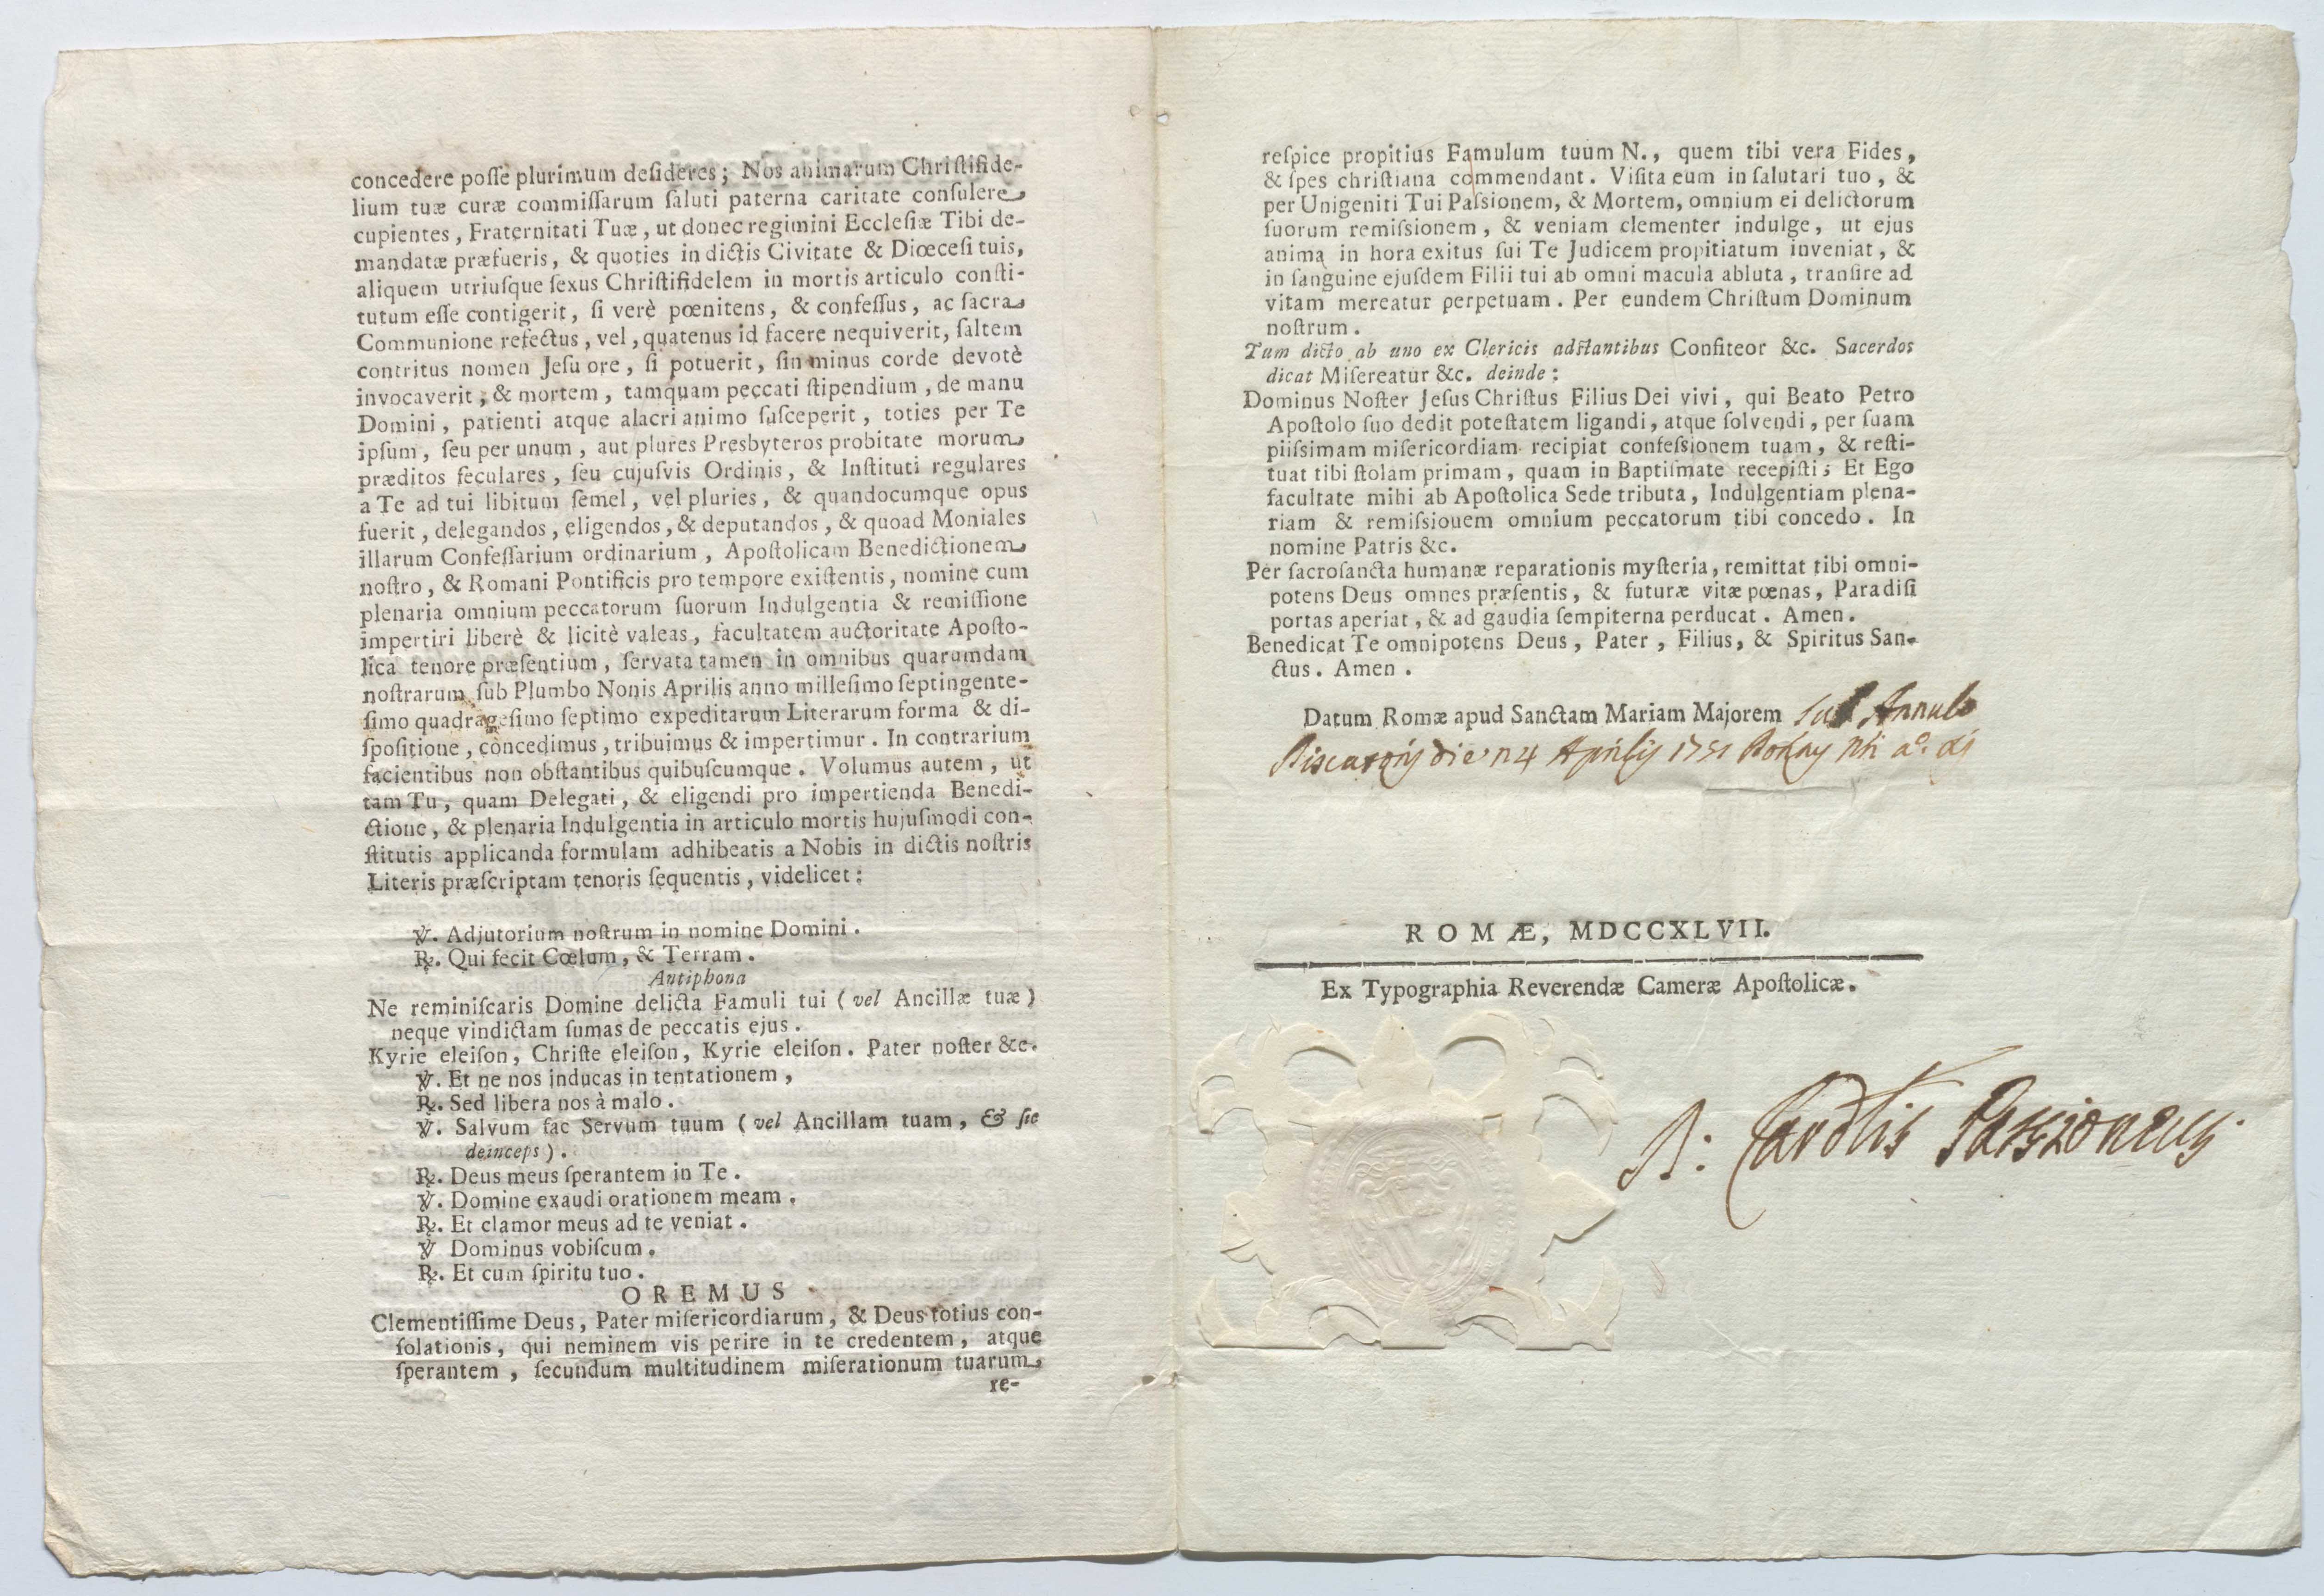 concedere poſſe plurimum deſideres; Nos animarum Chriſtifide-
lium tuæ curæ commiſſarum ſaluti paterna caritate conſulere
cupientes, Fraternitati Tuæ, ut donec regimini Eccleſiæ Tibi de-
mandatæ præfueris, & quoties in dictis Civitate & Diœceſi tuis,
aliquem utriuſque ſexus Chriſtifidelem in mortis articulo conſti-
tutum eſſe contigerit, ſi verè pœnitens, & confeſſus, ac ſacra
Communione refectus, vel, quatenus id facere nequiverit, ſaltem
contritus nomen Jeſu ore, ſi potuerit, ſin minus corde devotè
invocaverit, & mortem, tamquam peccati ſtipendium, de manu
Domini, patienti atque alacri animo ſuſceperit, toties per Te
ipſum, ſeu per unum, aut plures Presbyteros probitate morum
præditos ſeculares, ſeu cujuſvis Ordinis, & Inſtituti regulares
a Te ad tui libitum ſemel, vel pluries, & quandocumque opus
fuerit, delegandos, eligendos, & deputandos, & quoad Moniales
illarum Confeſſarium ordinarium, Apoſtolicam Benedictionem
noſtro, & Romani Pontificis pro tempore exiſtentis, nomine cum
plenaria omnium peccatorum ſuorum Indulgentia & remiſſione
impertiri liberè & licitè valeas, facultatem auctoritate Apoſto-
lica tenore præſentium, ſervata tamen in omnibus quarumdam
noſtrarum ſub Plumbo Nonis Aprilis anno milleſimo ſeptingente-
ſimo quadrageſimo ſeptimo expeditarum Literarum forma & di-
ſpoſitione, concedimus, tribuimus & impertimur. In contrarium
facientibus non obſtantibus quibuſcumque. Volumus autem, ut
tam Tu, quam Delegati, & eligendi pro impertienda Benedi-
ctione, & plenaria Indulgentia in articulo mortis hujuſmodi con-
ſtitutis applicanda formulam adhibeatis a Nobis in dictis noſtris
Literis præſcriptam tenoris ſequentis, videlicet:
℣. Adjutorium noſtrum in nomine Domini.
℟. Qui fecit Cœlum, & Terram.
Antiphona
Ne reminiſcaris Domine delicta Famuli tui (vel Ancillæ tuæ)
neque vindictam ſumas de peccatis ejus.
Kyrie eleiſon, Chriſte eleiſon, Kyrie eleiſon. Pater noſter &c.
℣. Et ne nos inducas in tentationem,
℟. Sed libera nos à malo.
℣. Salvum fac Servum tuum (vel Ancillam tuam, & ſic
deinceps).
℟. Deus meus ſperantem in Te.
℣. Domine exaudi orationem meam.
℟. Et clamor meus ad te veniat.
℣ Dominus vobiſcum.
℟. Et cum ſpiritu tuo.
OREMUS
Clementiſſime Deus, Pater miſericordiarum, & Deus totius con-
ſolationis, qui neminem vis perire in te credentem, atque
ſperantem, ſecundum multitudinem miſerationum tuarum
re-
reſpice propitius Famulum tuum N., quem tibi vera Fides,
& ſpes chriſtiana commendant. Viſita eum in ſalutari tuo, &
per Unigeniti Tui Paſsionem, & Mortem, omnium ei delictorum
ſuorum remiſsionem, & veniam clementer indulge, ut ejus
anima in hora exitus ſui Te Judicem propitiatum inveniat, &
in ſanguine ejuſdem Filii tui ab omni macula abluta, tranſire ad
vitam mereatur perpetuam. Per eundem Chriſtum Dominum
noſtrum.
Tum dicto ab uno ex Clericis adſtantibus Confiteor &c. Sacerdos
dicat Miſereatur &c. deinde:
Dominus Noſter Jeſus Chriſtus Filius Dei vivi, qui Beato Petro
Apoſtolo ſuo dedit poteſtatem ligandi, atque ſolvendi, per ſuam
piiſsimam miſericordiam recipiat confeſsionem tuam, & reſti-
tuat tibi ſtolam primam, quam in Baptiſmate recepiſti; Et Ego
facultate mihi ab Apoſtolica Sede tributa, Indulgentiam plena-
riam & remiſsiouem omnium peccatorum tibi concedo. In
nomine Patris &c.
Per ſacroſancta humanæ reparationis myſteria, remittat tibi omni-
potens Deus omnes præſentis, & futuræ vitæ pœnas, Paradiſi
portas aperiat, & ad gaudia ſempiterna perducat. Amen.
Benedicat Te omnipotens Deus, Pater, Filius, & Spiritus San-
ctus. Amen.
Datum Romæ apud Sanctam Mariam Majorem sub Annulo
Piscatoris die 24 Aprilis 1751
ROMÆ, MDCCXLVII.
Ex Typographia Reverendæ Cameræ Apoſtolicæ.
Cardlis Passioneus